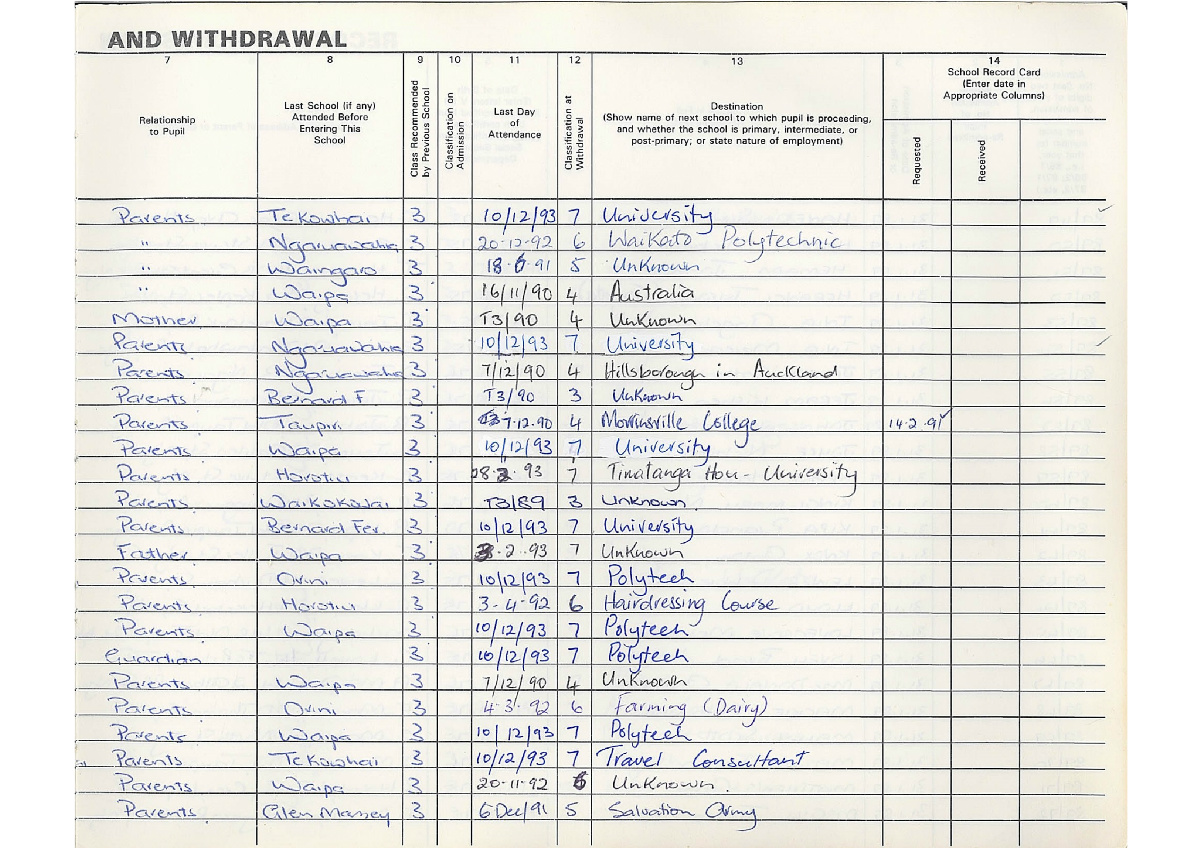 AND WITHDRAWAL
7 8 9 10 11 12 13 14
Relationship to Pupil
Last School (if any) Attended Before Entering This School
Class Recommended by Previous School
Classification on Admission
Last Day of Attendance
Classification at Withdrawal
Destination
(Show name of next school to which pupil is proceeding, and whether the school is primary, intermediate, or post-primary; or state nature of employment)
School Record Card
(Enter date in Appropriate Columns)
Requested
Received
Parents Te Kowhai 3 10/12/93 7 University
" Ngaruawahia 3 20-12-92 6 Waikato Polytechnic
" Waingaro 3 18·6·91 5 Unknown
" Waipa 3 16/11/90 4 Australia
Mother Waipa 3 T3/90 4 Unknown
Parents Ngaruawahia 3 10/12/93 7 University
Parents Ngaruawahia 3 7/12/90 4 Hillsborough in Auckland
Parents Bernard F. 3 T3/90 3 Unknown
Parents Taupiri 3 7.12.90 4 Morrinsville College 14·2·91
Parents Waipa 3 10/12/93 7 University
Parents Horotiu 3 28· 93 7 Timatanga Hou - University
Parents 3 T3/89 3 Unknown
Parents Bernard Fer. 3 10/12/93 7 University
Father Waipa 3 ·2·93 7 Unknown
Parents Orini 3 10/12/93 7 Polytech
Parents Horotiu 3 3-4-92 6 Hairdressing Course
Parents Waipa 3 10/12/93 7 Polytech
Guardian 3 10/12/93 7 Polytech
Parents Waipa 3 7/12/90 4 Unknown
Parents Orini 3 4·3·92 6 Farming (Dairy)
Parents Waipa 3 10/12/93 7 Polytech
Parents Te Kowhai 3 10/12/93 7 Travel Consultant
Parents Waipa 3 20-11-92 6 Unknown.
Parents Glen Massey 3 6 Dec/91 5 Salvation Army